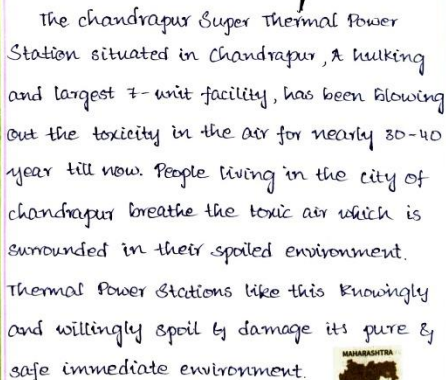 The chandrapur Super Thermal Power
Station situated in Chandrapur, A hulking
and largest 7-unit facility, has been blowing
out the toxicity in the air for nearly 30-40
year till now. People living in the city of
chandrapur breathe the toxic air which is
surrounded in their spoiled environment.
Thermal Power Stations like this knowingly
and willingly spoil & damage its pure &
safe immediate environment.
MAHARASHTRA